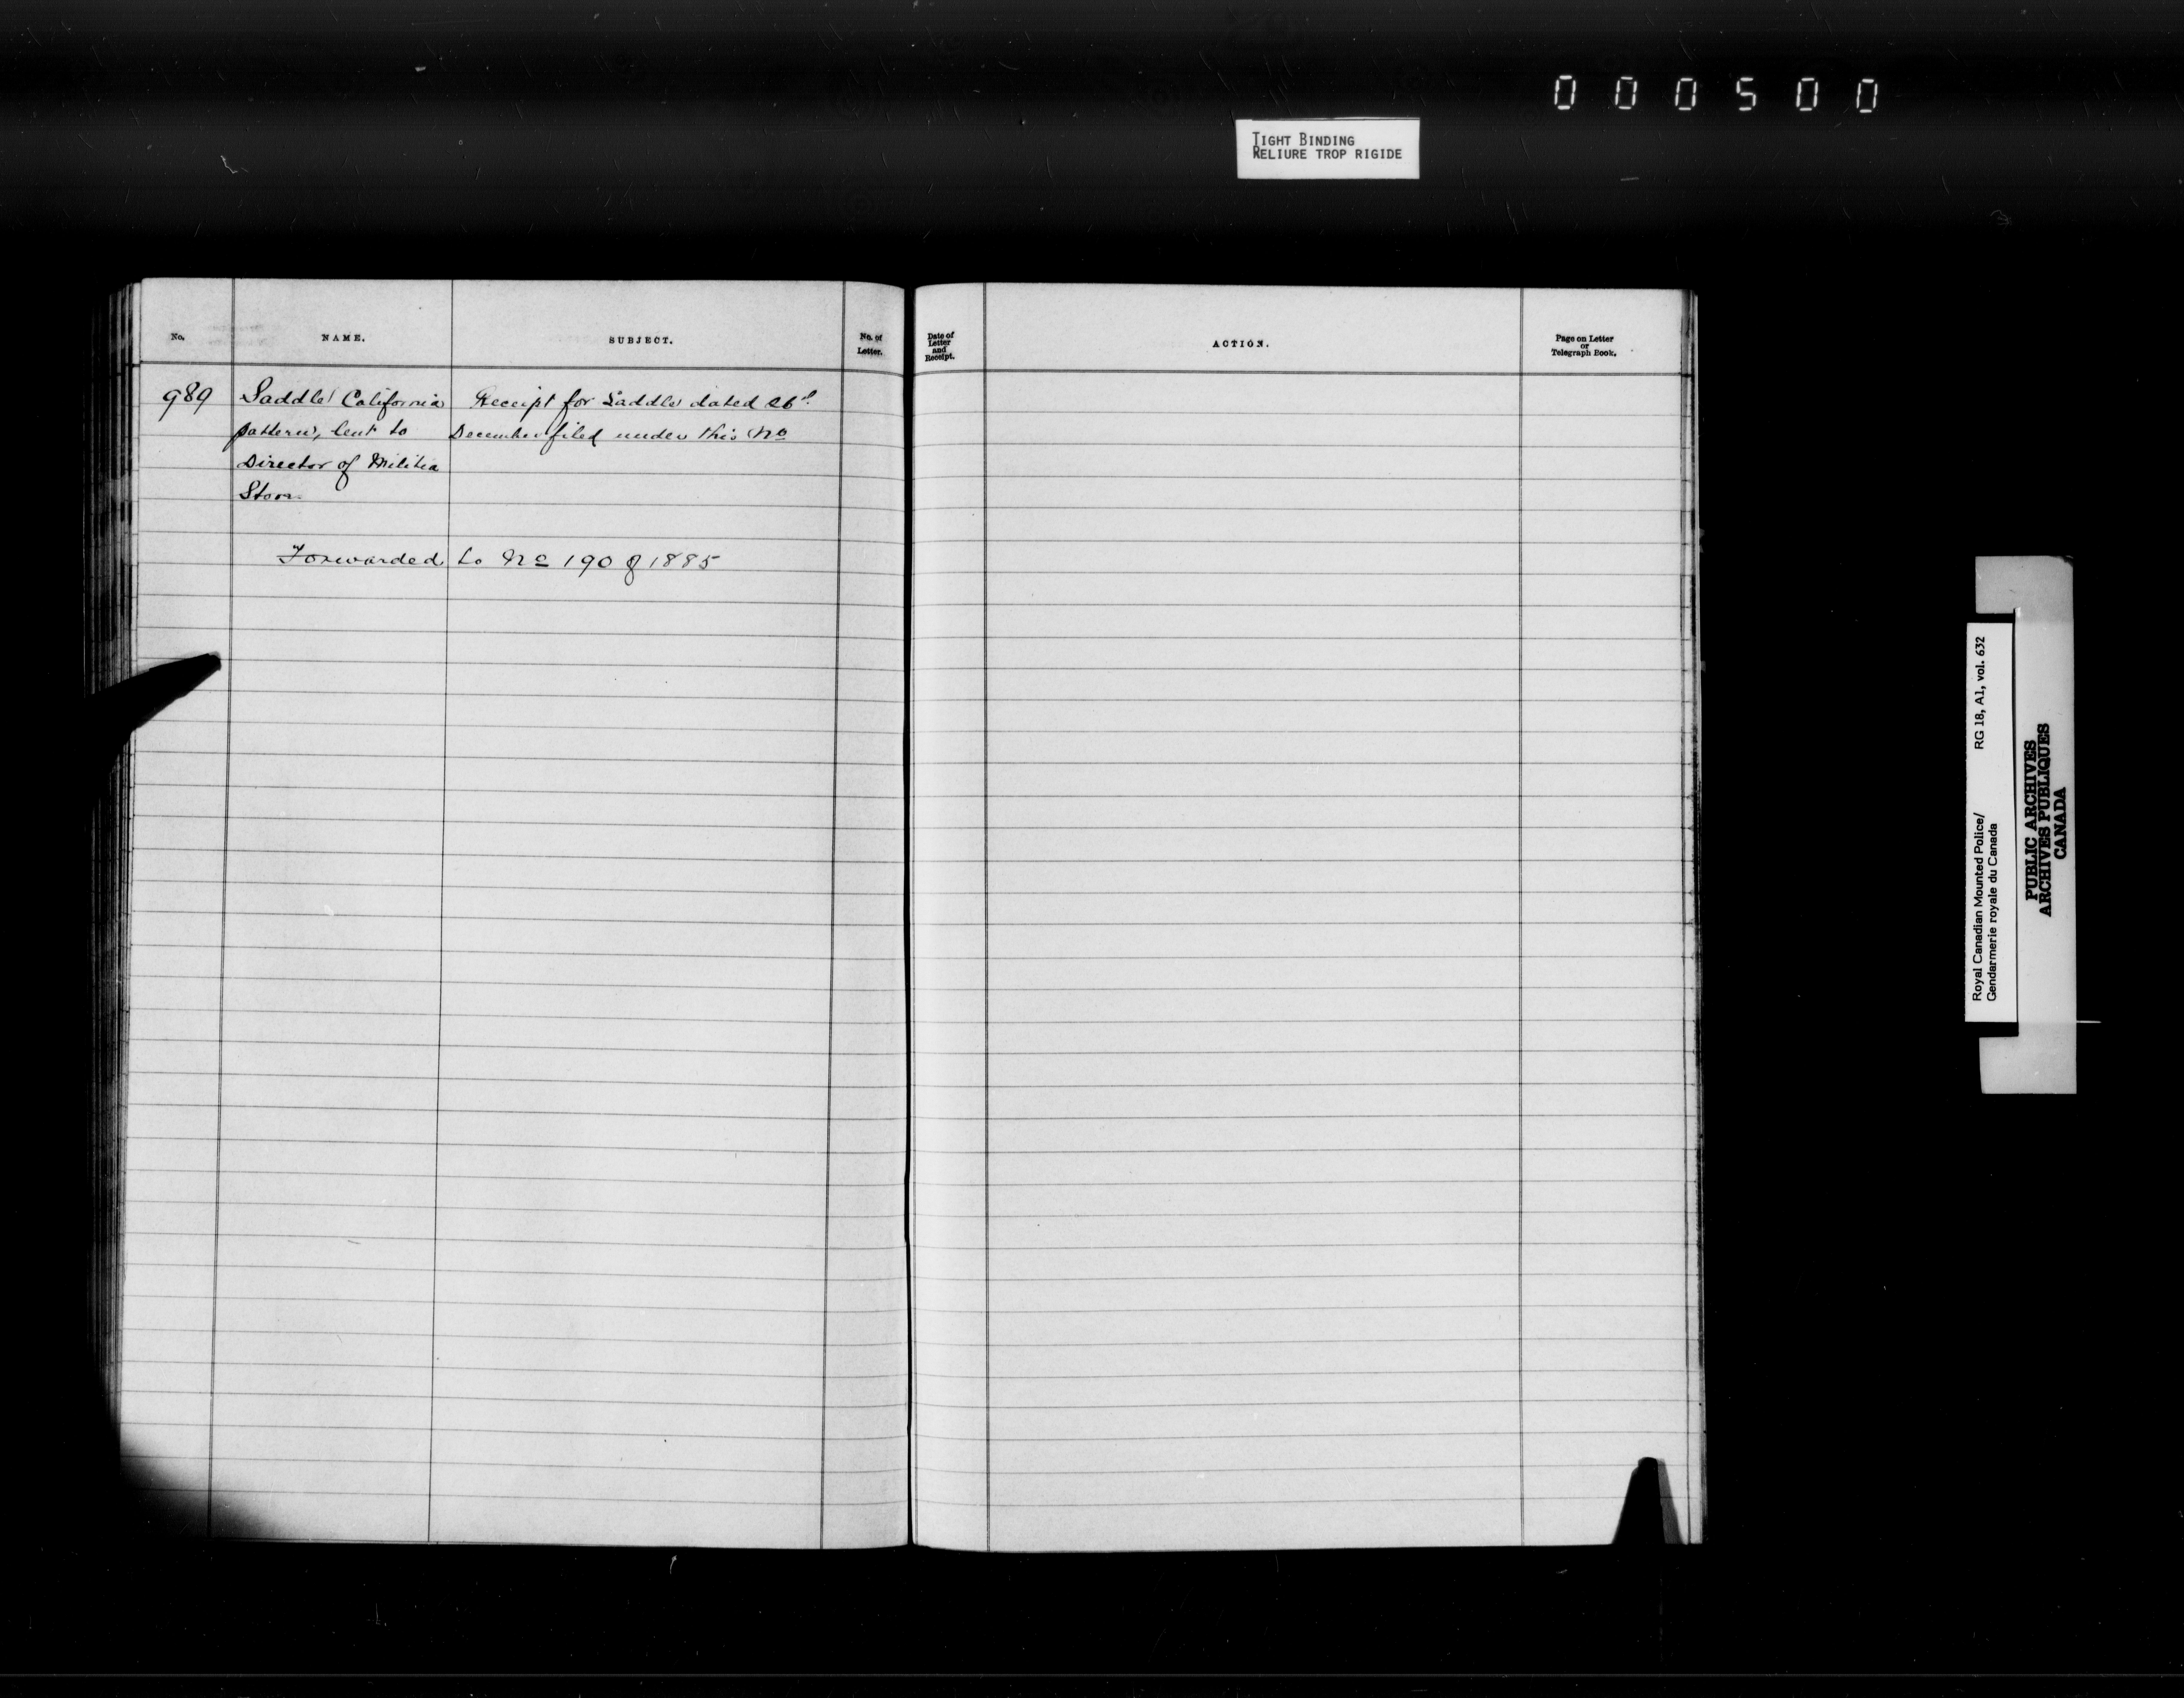 000500
TIGHT BINDING
RELIURE TROP RIGIDE
No.
NAME.
SUBJECT.
No. of
Letter.
Date of
Letter
and
Receipt.
ACTION.
Page on Letter
or
Telegraph Book.
989
Saddle California
pattern, lent to
Director of Militia
Receipt for Saddle dated 26
December filed under this No
Forwarded to No 190 of 1885
Royal Canadian Mounted Police/
Gendarmerie royale du Canada
RG 18, A1, vol. 632
PUBLIC ARCHIVES
ARCHIVES PUBLIQUES
CANADA